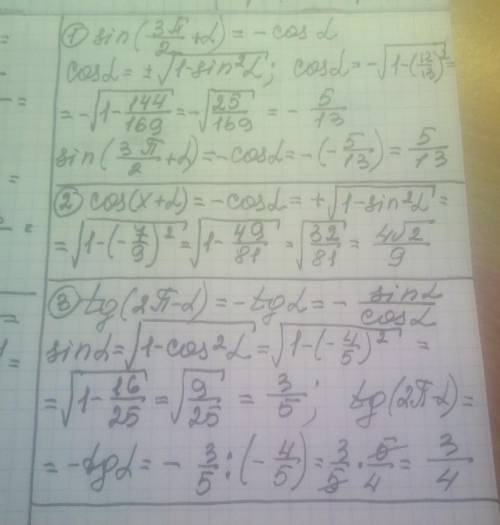 ① sin(3π/2 + α) = - cos α
cos α = ±√(1-sin²α); cos α = -√(1-(12/13)²) =
= -√(1-144/169) = -√(25/169) = - 5/13
sin(3π/2 + α) = -cos α = -(-5/13) = 5/13
② cos(π+α) = -cos α = +√(1-sin²α) =
= √(1-(-7/9)²) = √(1-49/81) = √(32/81) = 4√2/9
③ tg(2π-α) = -tg α = - sin α/cos α
sin α = √(1-cos²α) = √(1-(-4/5)²) =
= √(1-16/25) = √(9/25) = 3/5; tg(2π-α) =
= -tg α = - 3/5 : (-4/5) = 3/5 · 5/4 = 3/4